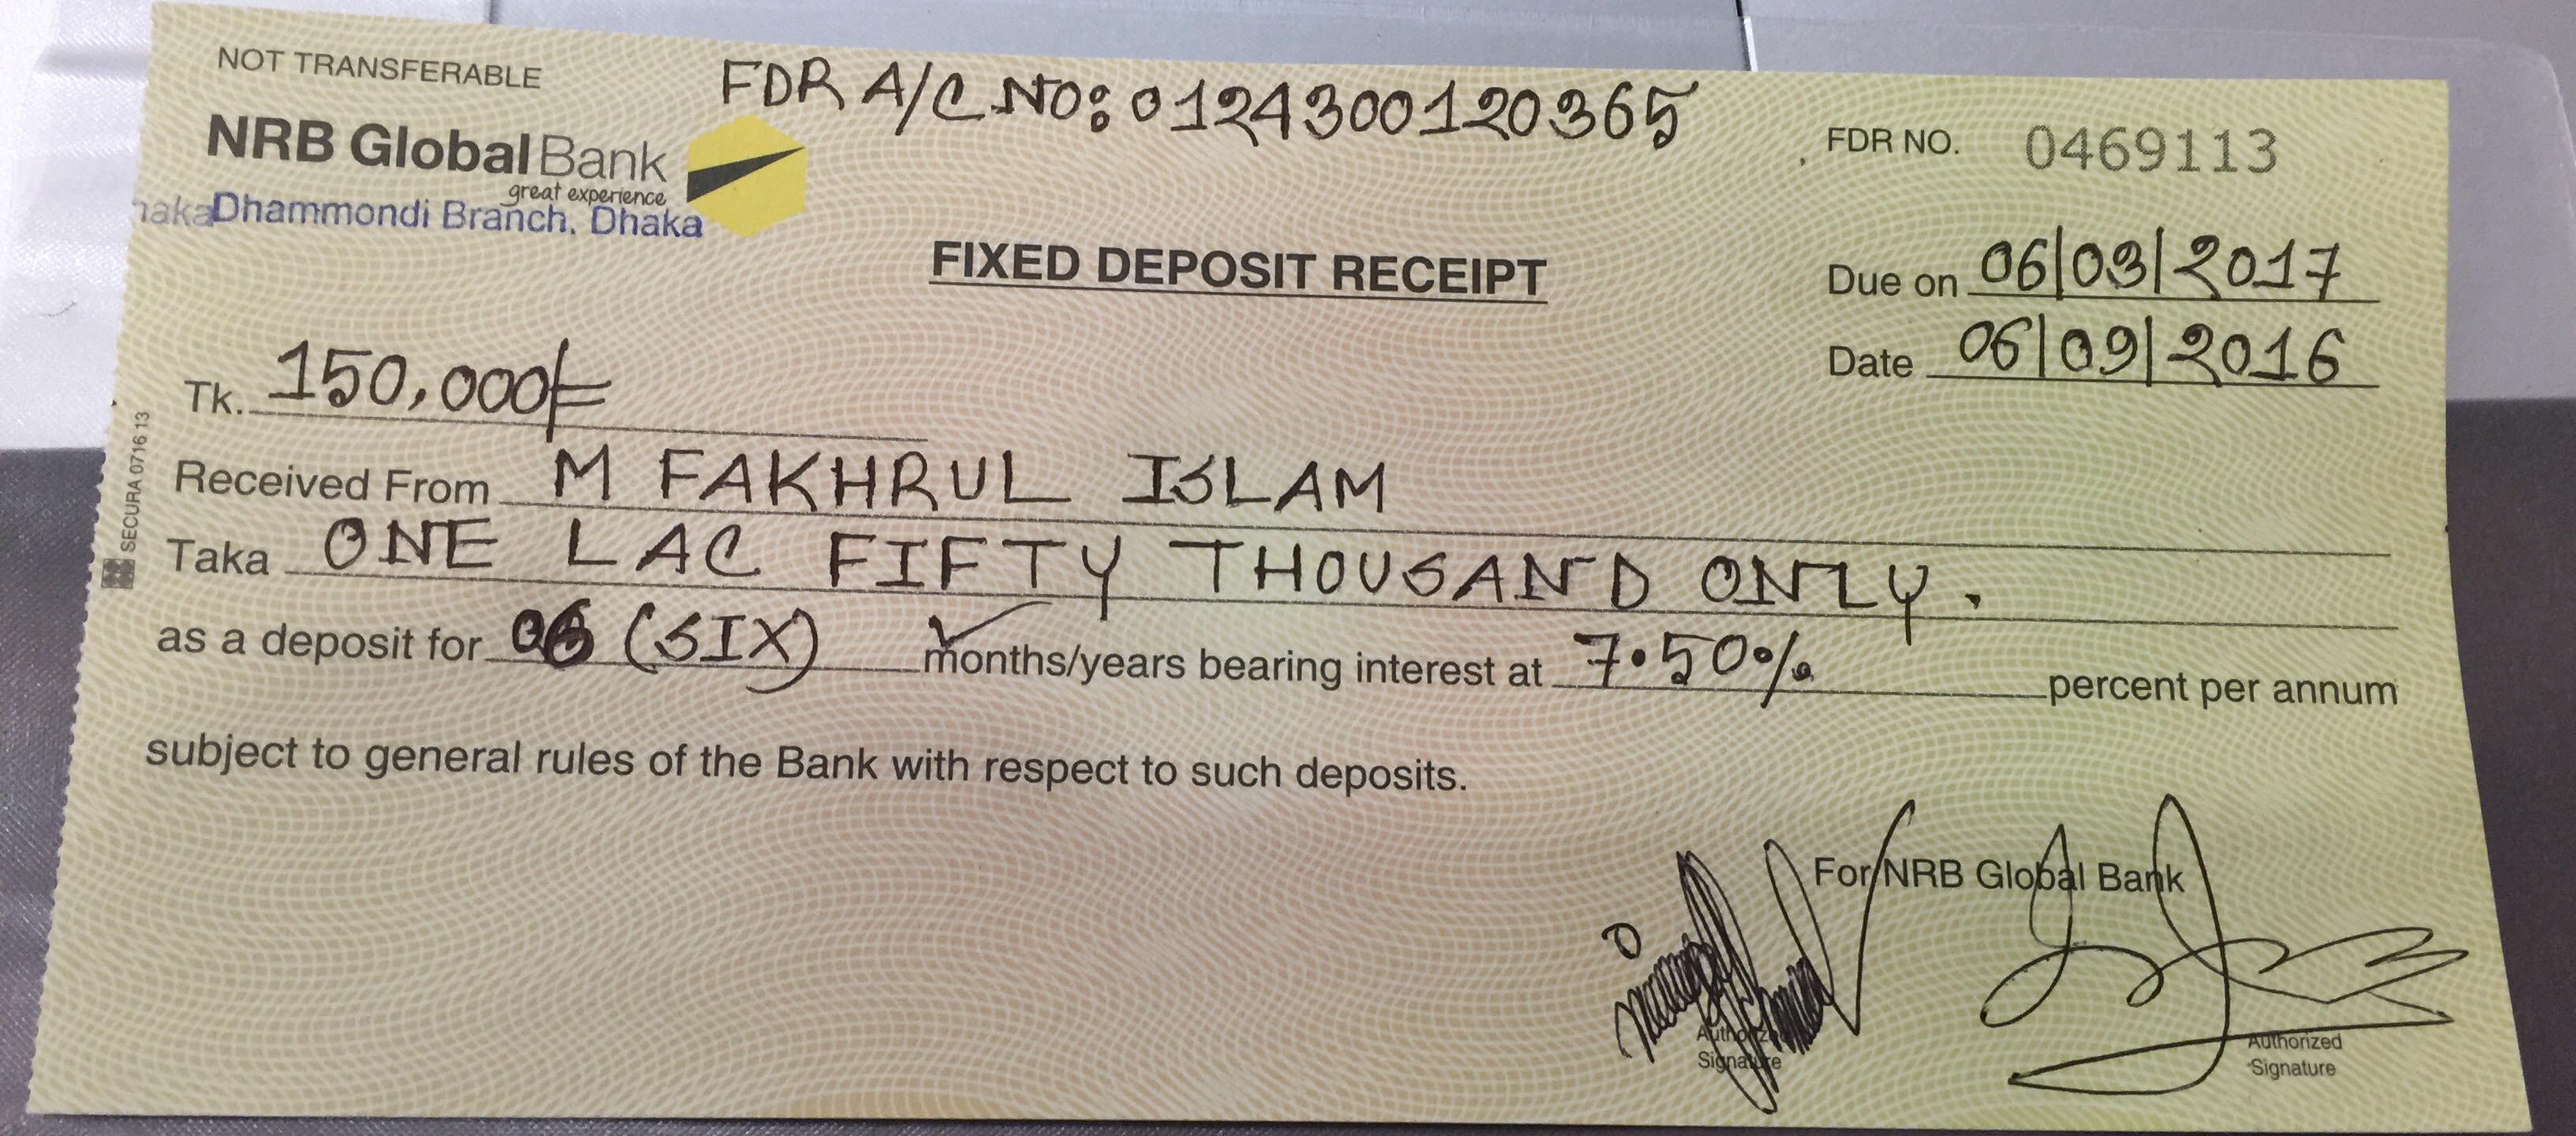 NOT TRANSFERABLE
FDR A/C NO: 0124300120365
FDR NO. 0469113
NRB Global Bank
great experience
haka Dhammondi Branch, Dhaka
FIXED DEPOSIT RECEIPT
Due on 06/03/2017
Date 06/09/2016
Tk. 150,000/=
Received From M FAKHRUL ISLAM
Taka ONE LAC FIFTY THOUSAND ONLY.
as a deposit for 06 (SIX) months/years bearing interest at 7.50% percent per annum
subject to general rules of the Bank with respect to such deposits.
SECURA 0716 13
For NRB Global Bank
Authorized Signature
Authorized Signature